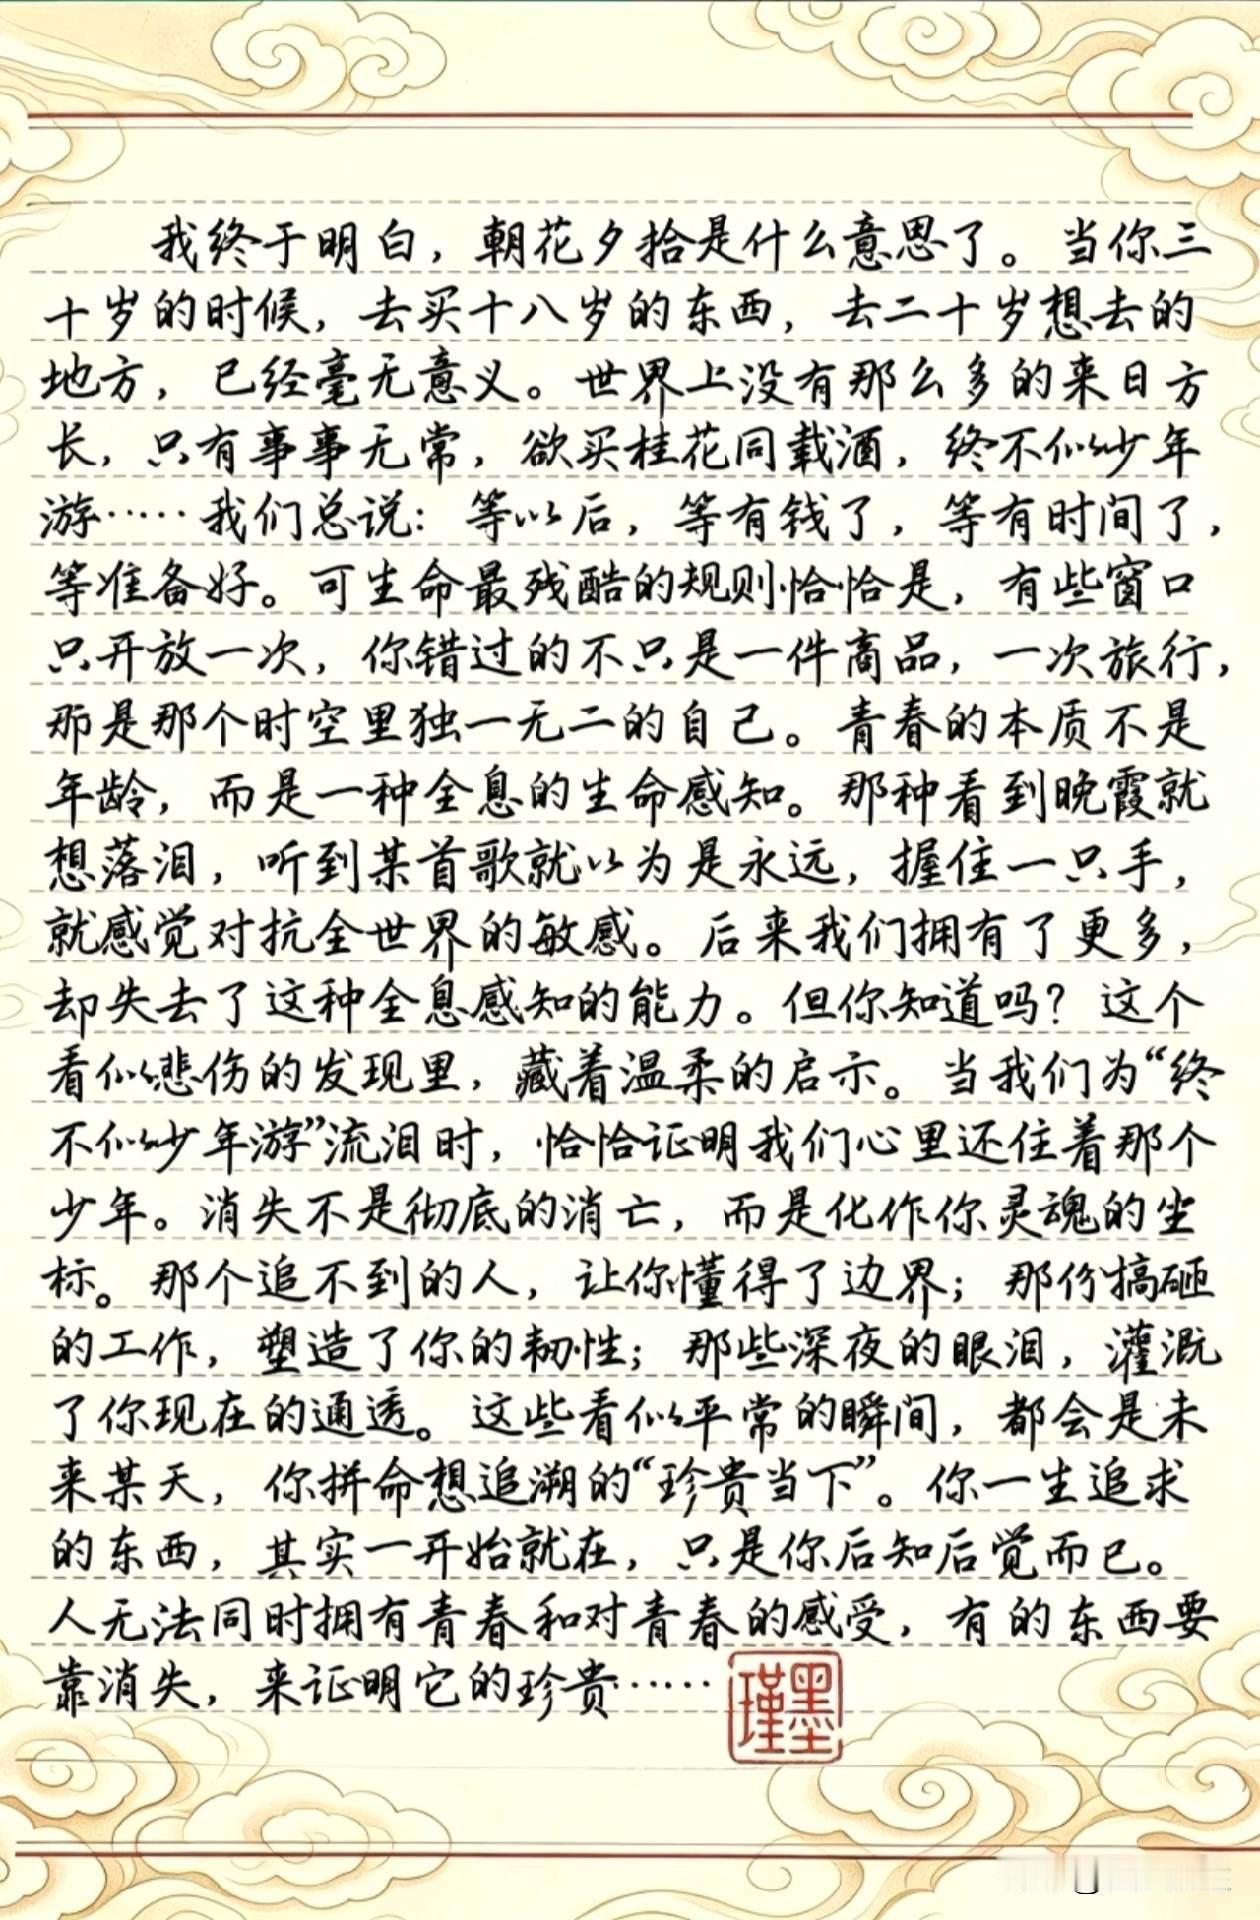 我终于明白，朝花夕拾是什么意思了。当你三
十岁的时候，去买十八岁的东西，去二十岁想去的
地方，已经毫无意义。世界上没有那么多的来日方
长，只有事事无常，欲买桂花同载酒，终不似少年
游……我们总说：等以后，等有钱了，等有时间了，
等准备好。可生命最残酷的规则恰恰是，有些窗口
只开放一次，你错过的不只是一件商品，一次旅行，
那是那个时空里独一无二的自己。青春的本质不是
年龄，而是一种全息的生命感知。那种看到晚霞就
想落泪，听到某首歌就以为是永远，握住一只手，
就感觉对抗全世界的敏感。后来我们拥有了更多，
却失去了这种全息感知的能力。但你知道吗？这个
看似悲伤的发现里，藏着温柔的启示。当我们为“终
不似少年游”流泪时，恰恰证明我们心里还住着那个
少年。消失不是彻底的消亡，而是化作你灵魂的坐
标。那个追不到的人，让你懂得了边界；那份搞砸
的工作，塑造了你的韧性；那些深夜的眼泪，灌溉
了你现在的通透。这些看似平常的瞬间，都会是未
来某天，你拼命想追溯的“珍贵当下”。你一生追求
的东西，其实一开始就在，只是你后知后觉而已。
人无法同时拥有青春和对青春的感受，有的东西要
靠消失，来证明它的珍贵……
墨瑾